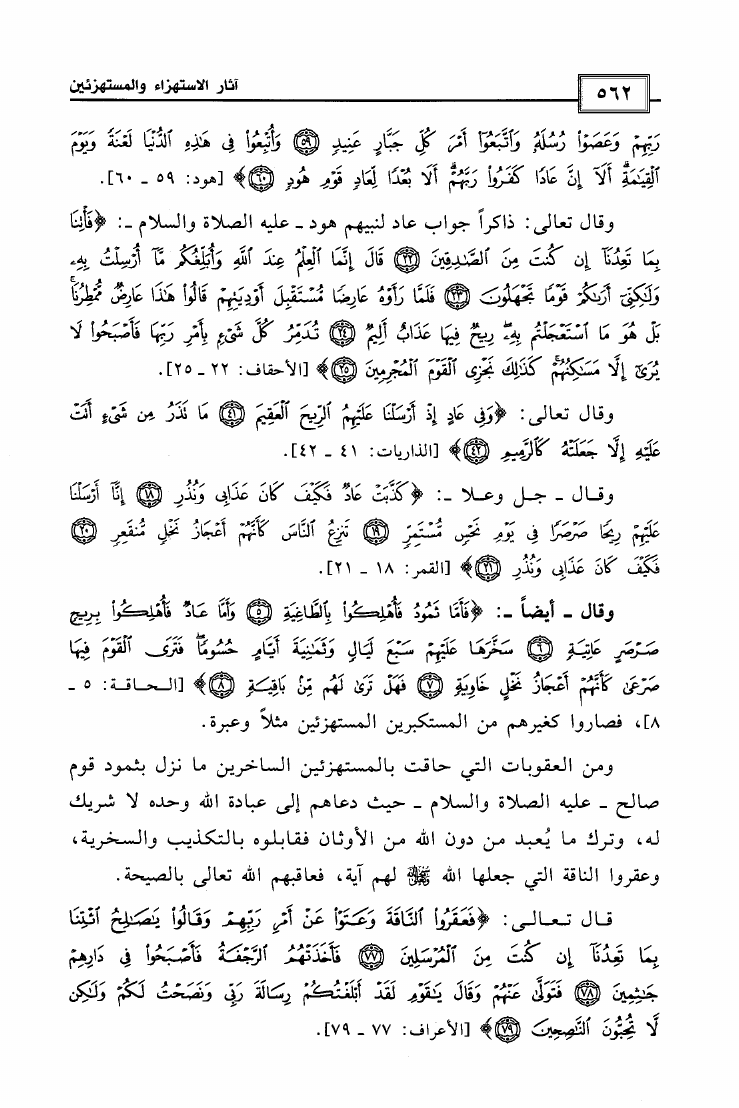 ٥٦٢ آثار الاستهزاء والمستهزئين
رَبِّهِمْ وَعَصَوْا۟ رُسُلَهُۥ وَٱتَّبَعُوٓا۟ أَمْرَ كُلِّ جَبَّارٍ عَنِيدٍ ﴿٥٩﴾ وَأُتْبِعُوا۟ فِى هَٰذِهِ ٱلدُّنْيَا لَعْنَةً وَيَوْمَ
ٱلْقِيَٰمَةِ ۗ أَلَآ إِنَّ عَادًا كَفَرُوا۟ رَبَّهُمْ ۗ أَلَا بُعْدًا لِّعَادٍ قَوْمِ هُودٍ ﴿٦٠﴾﴾ [هود: ٥٩ ـ ٦٠].
وقال تعالى: ذاكراً جواب عاد لنبيهم هود ـ عليه الصلاة والسلام ـ: ﴿فَأْتِنَا
بِمَا تَعِدُنَآ إِن كُنتَ مِنَ ٱلصَّٰدِقِينَ ﴿٢٢﴾ قَالَ إِنَّمَا ٱلْعِلْمُ عِندَ ٱللَّهِ وَأُبَلِّغُكُم مَّآ أُرْسِلْتُ بِهِۦ
وَلَٰكِنِّىٓ أَرَىٰكُمْ قَوْمًا تَجْهَلُونَ ﴿٢٣﴾ فَلَمَّا رَأَوْهُ عَارِضًا مُّسْتَقْبِلَ أَوْدِيَتِهِمْ قَالُوا۟ هَٰذَا عَارِضٌ مُّمْطِرُنَا ۚ
بَلْ هُوَ مَا ٱسْتَعْجَلْتُم بِهِۦ ۖ رِيحٌ فِيهَا عَذَابٌ أَلِيمٌ ﴿٢٤﴾ تُدَمِّرُ كُلَّ شَىْءٍۭ بِأَمْرِ رَبِّهَا فَأَصْبَحُوا۟ لَا
يُرَىٰٓ إِلَّا مَسَٰكِنُهُمْ ۚ كَذَٰلِكَ نَجْزِى ٱلْقَوْمَ ٱلْمُجْرِمِينَ ﴿٢٥﴾﴾ [الأحقاف: ٢٢ ـ ٢٥].
وقال تعالى: ﴿وَفِى عَادٍ إِذْ أَرْسَلْنَا عَلَيْهِمُ ٱلرِّيحَ ٱلْعَقِيمَ ﴿٤١﴾ مَا تَذَرُ مِن شَىْءٍ أَتَتْ
عَلَيْهِ إِلَّا جَعَلَتْهُ كَٱلرَّمِيمِ ﴿٤٢﴾﴾ [الذاريات: ٤١ ـ ٤٢].
وقال ـ جل وعلا ـ: ﴿كَذَّبَتْ عَادٌ فَكَيْفَ كَانَ عَذَابِى وَنُذُرِ ﴿١٨﴾ إِنَّآ أَرْسَلْنَا
عَلَيْهِمْ رِيحًا صَرْصَرًا فِى يَوْمِ نَحْسٍ مُّسْتَمِرٍّ ﴿١٩﴾ تَنزِعُ ٱلنَّاسَ كَأَنَّهُمْ أَعْجَازُ نَخْلٍ مُّنقَعِرٍ ﴿٢٠﴾
فَكَيْفَ كَانَ عَذَابِى وَنُذُرِ ﴿٢١﴾﴾ [القمر: ١٨ ـ ٢١].
وقال ـ أيضاً ـ: ﴿فَأَمَّا ثَمُودُ فَأُهْلِكُوا۟ بِٱلطَّاغِيَةِ ﴿٥﴾ وَأَمَّا عَادٌ فَأُهْلِكُوا۟ بِرِيحٍ
صَرْصَرٍ عَاتِيَةٍ ﴿٦﴾ سَخَّرَهَا عَلَيْهِمْ سَبْعَ لَيَالٍ وَثَمَٰنِيَةَ أَيَّامٍ حُسُومًا ۖ فَتَرَى ٱلْقَوْمَ فِيهَا
صَرْعَىٰ كَأَنَّهُمْ أَعْجَازُ نَخْلٍ خَاوِيَةٍ ﴿٧﴾ فَهَلْ تَرَىٰ لَهُم مِّنۢ بَاقِيَةٍ ﴿٨﴾﴾ [الحاقة: ٥ ـ
٨]، فصاروا كغيرهم من المستكبرين المستهزئين مثلاً وعبرة.
ومن العقوبات التي حاقت بالمستهزئين الساخرين ما نزل بثمود قوم
صالح ـ عليه الصلاة والسلام ـ حيث دعاهم إلى عبادة الله وحده لا شريك
له، وترك ما يُعبد من دون الله من الأوثان فقابلوه بالتكذيب والسخرية،
وعقروا الناقة التي جعلها الله ﷻ لهم آية، فعاقبهم الله تعالى بالصيحة.
قال تعالى: ﴿فَعَقَرُوا۟ ٱلنَّاقَةَ وَعَتَوْا۟ عَنْ أَمْرِ رَبِّهِمْ وَقَالُوا۟ يَٰصَٰلِحُ ٱئْتِنَا
بِمَا تَعِدُنَآ إِن كُنتَ مِنَ ٱلْمُرْسَلِينَ ﴿٧٧﴾ فَأَخَذَتْهُمُ ٱلرَّجْفَةُ فَأَصْبَحُوا۟ فِى دَارِهِمْ
جَٰثِمِينَ ﴿٧٨﴾ فَتَوَلَّىٰ عَنْهُمْ وَقَالَ يَٰقَوْمِ لَقَدْ أَبْلَغْتُكُمْ رِسَالَةَ رَبِّى وَنَصَحْتُ لَكُمْ وَلَٰكِن
لَّا تُحِبُّونَ ٱلنَّٰصِحِينَ ﴿٧٩﴾﴾ [الأعراف: ٧٧ ـ ٧٩].